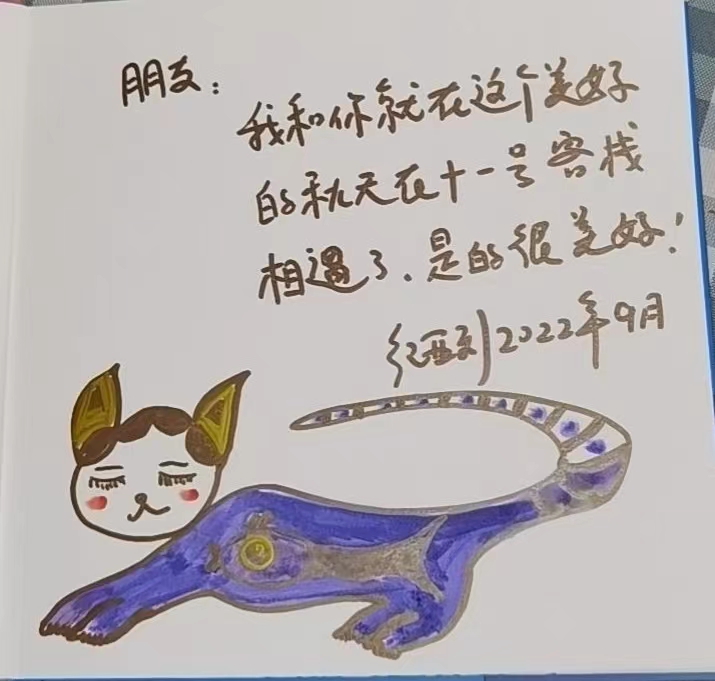 朋友：
我和你就在这个美好
的秋天在十一号客栈
相遇了.是的很美好!
2022年9月